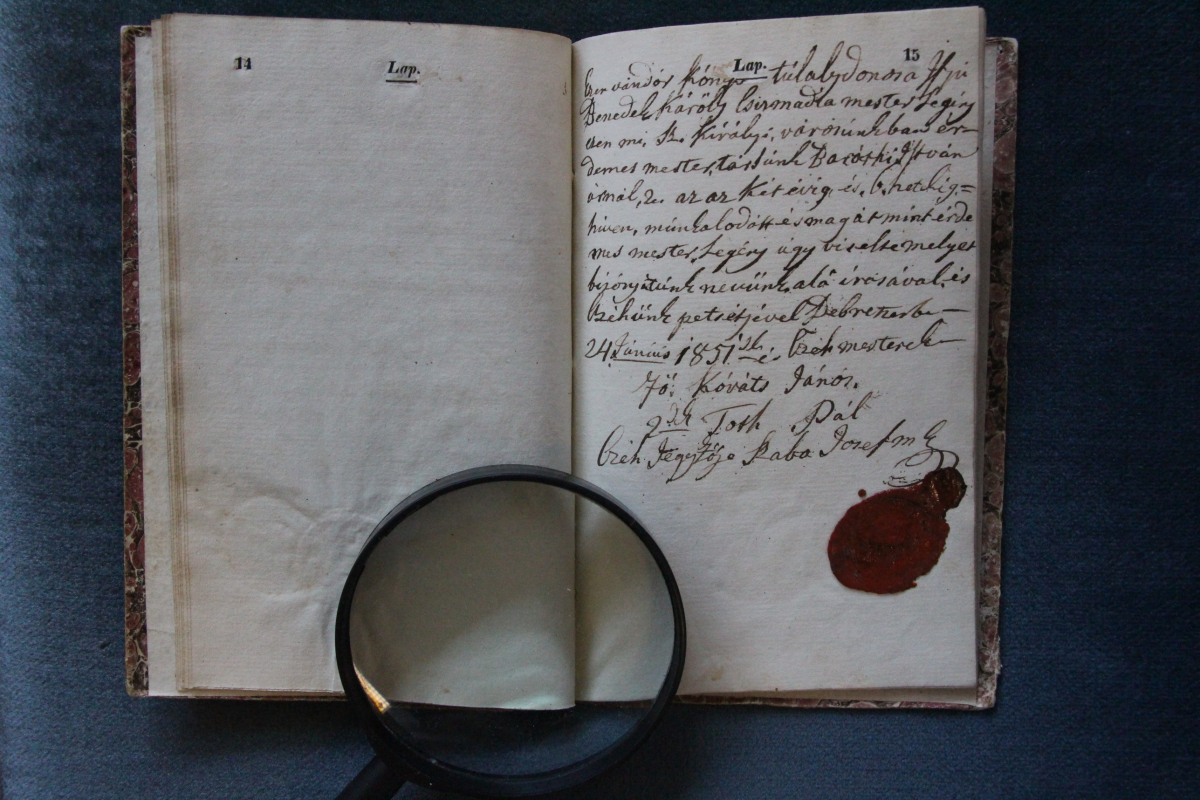 14
Lap.
Lap.
15
Ezen vándór Könyv túlajdonosa Ifjú
Benedek Károly Csizmadia mester Legény
mi, Sz. Királyi, városúnkban ér-
demes mester, társúnk István
úrnál, 2. az az Két évig és, 6. hetekig,=
híven, múnkalodótt és magát mint érde
mes mester, Legény úgy viselte melyet
bizónyítúnk nevünk, alá írásával, és
Czéhünk petsétjével Debretzenbe—
24 Június 1851 Czéh mesterek—
Fő. Kóváts János.
2dik Toth Pál
Czéh Jegyzője Baba Josef mk